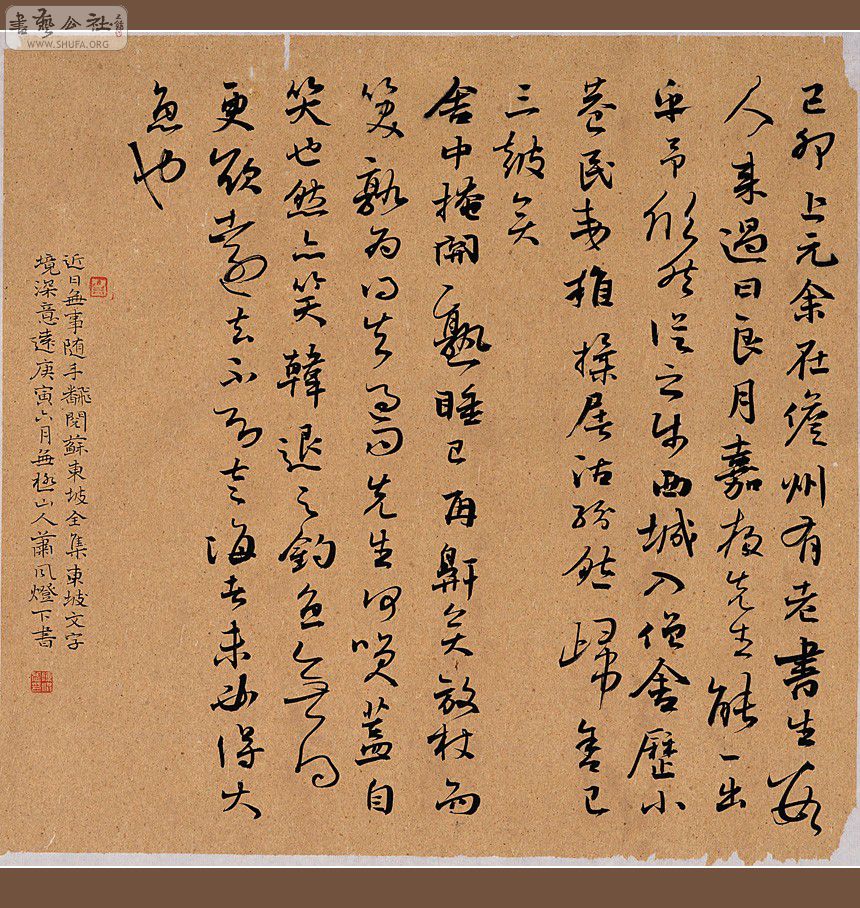 己卯上元余在儋州有老書生數
人來過曰良月嘉夜先生能一出
乎予欣然從之步西城入僧舍歷小
巷民夷雜揉屠沽紛然歸舍已
三鼓矣
舍中掩關熟睡已再鼾矣放杖而
笑孰為得失過問先生何咲蓋自
笑也然亦笑韓退之釣魚無得
更欲遠去不知走海者未必得大
魚也
近日無事隨手翻閱蘇東坡全集東坡文字
境深意遠庚寅六月無極山人蕭風燈下書
書藝公社
WWW.SHUFA.ORG